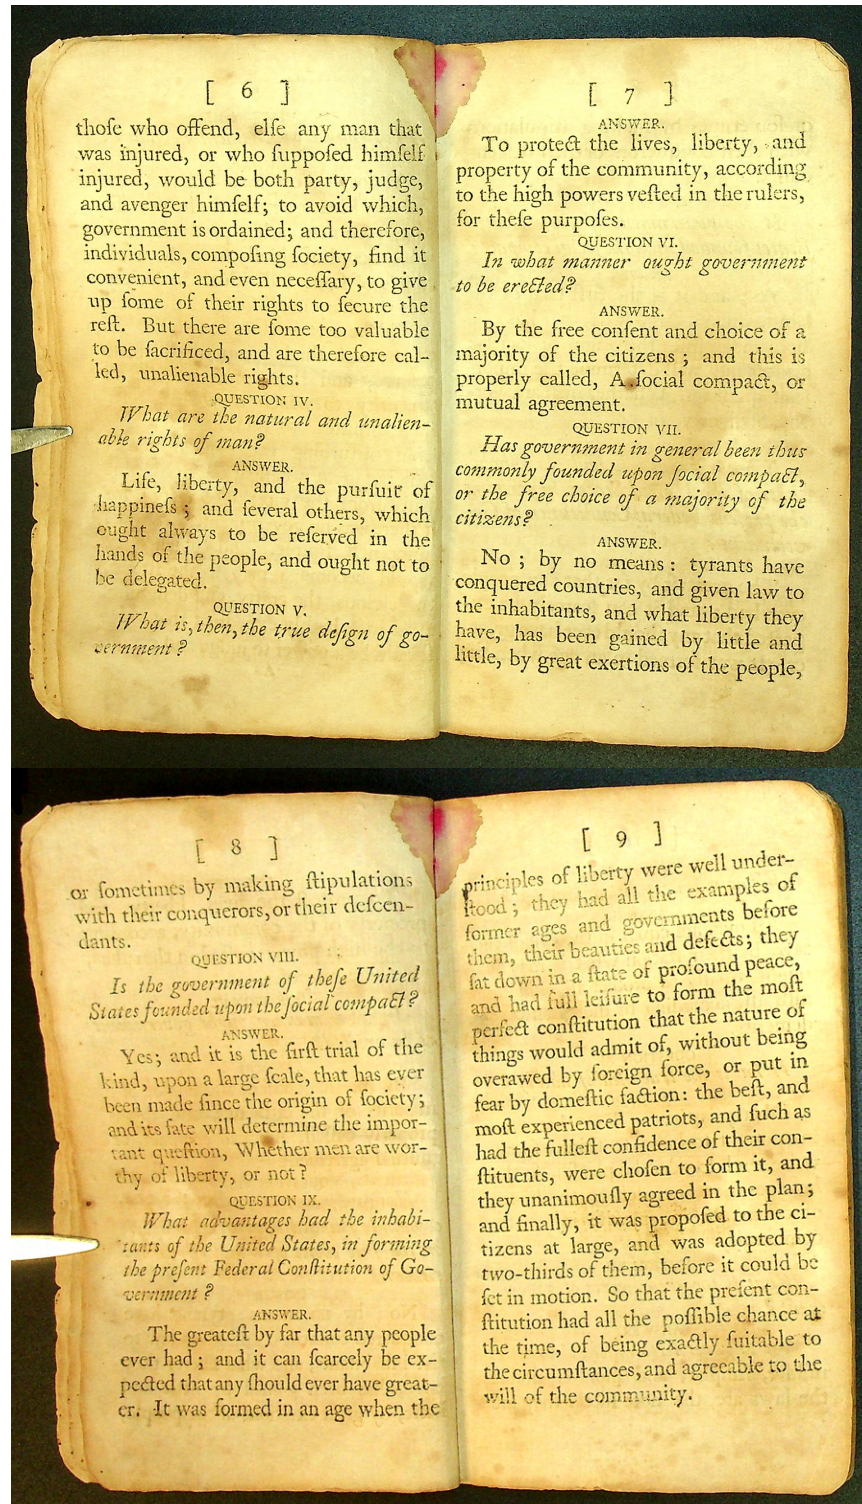 [ 6 ]
thoſe who offend, elſe any man that
was injured, or who ſuppoſed himſelf
injured, would be both party, judge,
and avenger himſelf; to avoid which,
government is ordained; and therefore,
individuals, compoſing ſociety, find it
convenient, and even neceſſary, to give
up ſome of their rights to ſecure the
reſt. But there are ſome too valuable
to be ſacrificed, and are therefore cal-
led, unalienable rights.
QUESTION IV.
What are the natural and unalien-
able rights of man?
ANSWER.
Life, liberty, and the purſuit of
happineſs ; and ſeveral others, which
ought always to be reſerved in the
hands of the people, and ought not to
be delegated.
QUESTION V.
What is, then, the true deſign of go-
vernment ?
[ 7 ]
ANSWER.
To protect the lives, liberty, and
property of the community, according
to the high powers veſted in the rulers,
for theſe purpoſes.
QUESTION VI.
In what manner ought government
to be erected?
ANSWER.
By the free conſent and choice of a
majority of the citizens ; and this is
properly called, A ſocial compact, or
mutual agreement.
QUESTION VII.
Has government in general been thus
commonly founded upon ſocial compact,
or the free choice of a majority of the
citizens?
ANSWER.
No ; by no means : tyrants have
conquered countries, and given law to
the inhabitants, and what liberty they
have, has been gained by little and
little, by great exertions of the people,
[ 8 ]
or ſometimes by making ſtipulations
with their conquerors, or their deſcen-
dants.
QUESTION VIII.
Is the government of theſe United
States founded upon the ſocial compact?
ANSWER.
Yes; and it is the firſt trial of the
kind, upon a large ſcale, that has ever
been made ſince the origin of ſociety;
and its fate will determine the impor-
tant queſtion, Whether men are wor-
thy of liberty, or not ?
QUESTION IX.
What advantages had the inhabi-
tants of the United States, in forming
the preſent Federal Conſtitution of Go-
vernment ?
ANSWER.
The greateſt by far that any people
ever had ; and it can ſcarcely be ex-
pected that any ſhould ever have great-
er. It was formed in an age when the
[ 9 ]
principles of liberty were well under-
ſtood ; they had all the examples of
former ages and governments before
them, their beauties and defects; they
ſat down in a ſtate of profound peace,
and had full leiſure to form the moſt
perfect conſtitution that the nature of
things would admit of, without being
overawed by foreign force, or put in
fear by domeſtic faction: the beſt, and
moſt experienced patriots, and ſuch as
had the fulleſt confidence of their con-
ſtituents, were choſen to form it, and
they unanimouſly agreed in the plan;
and finally, it was propoſed to the ci-
tizens at large, and was adopted by
two-thirds of them, before it could be
ſet in motion. So that the preſent con-
ſtitution had all the poſſible chance at
the time, of being exactly ſuitable to
the circumſtances, and agreeable to the
will of the community.